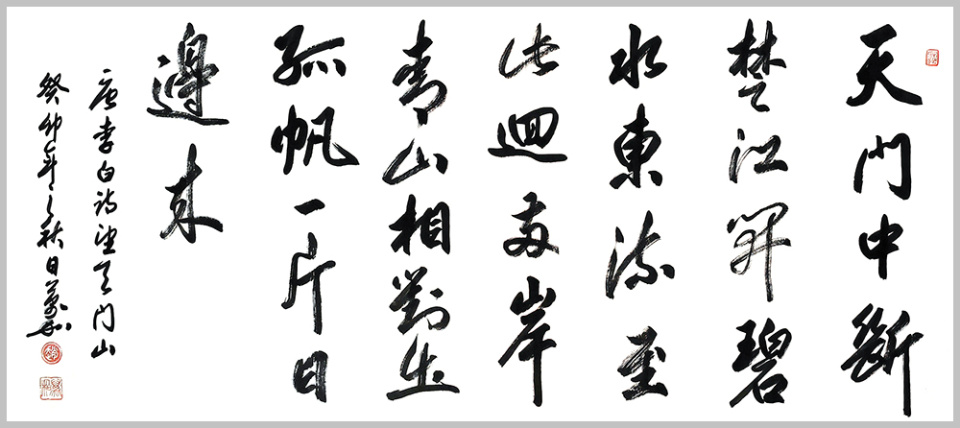 天門中斷
楚江開碧
水東流至
此迴兩岸
青山相對出
孤帆一片日
邊來
唐李白詩望天門山
癸卯年之秋日萬